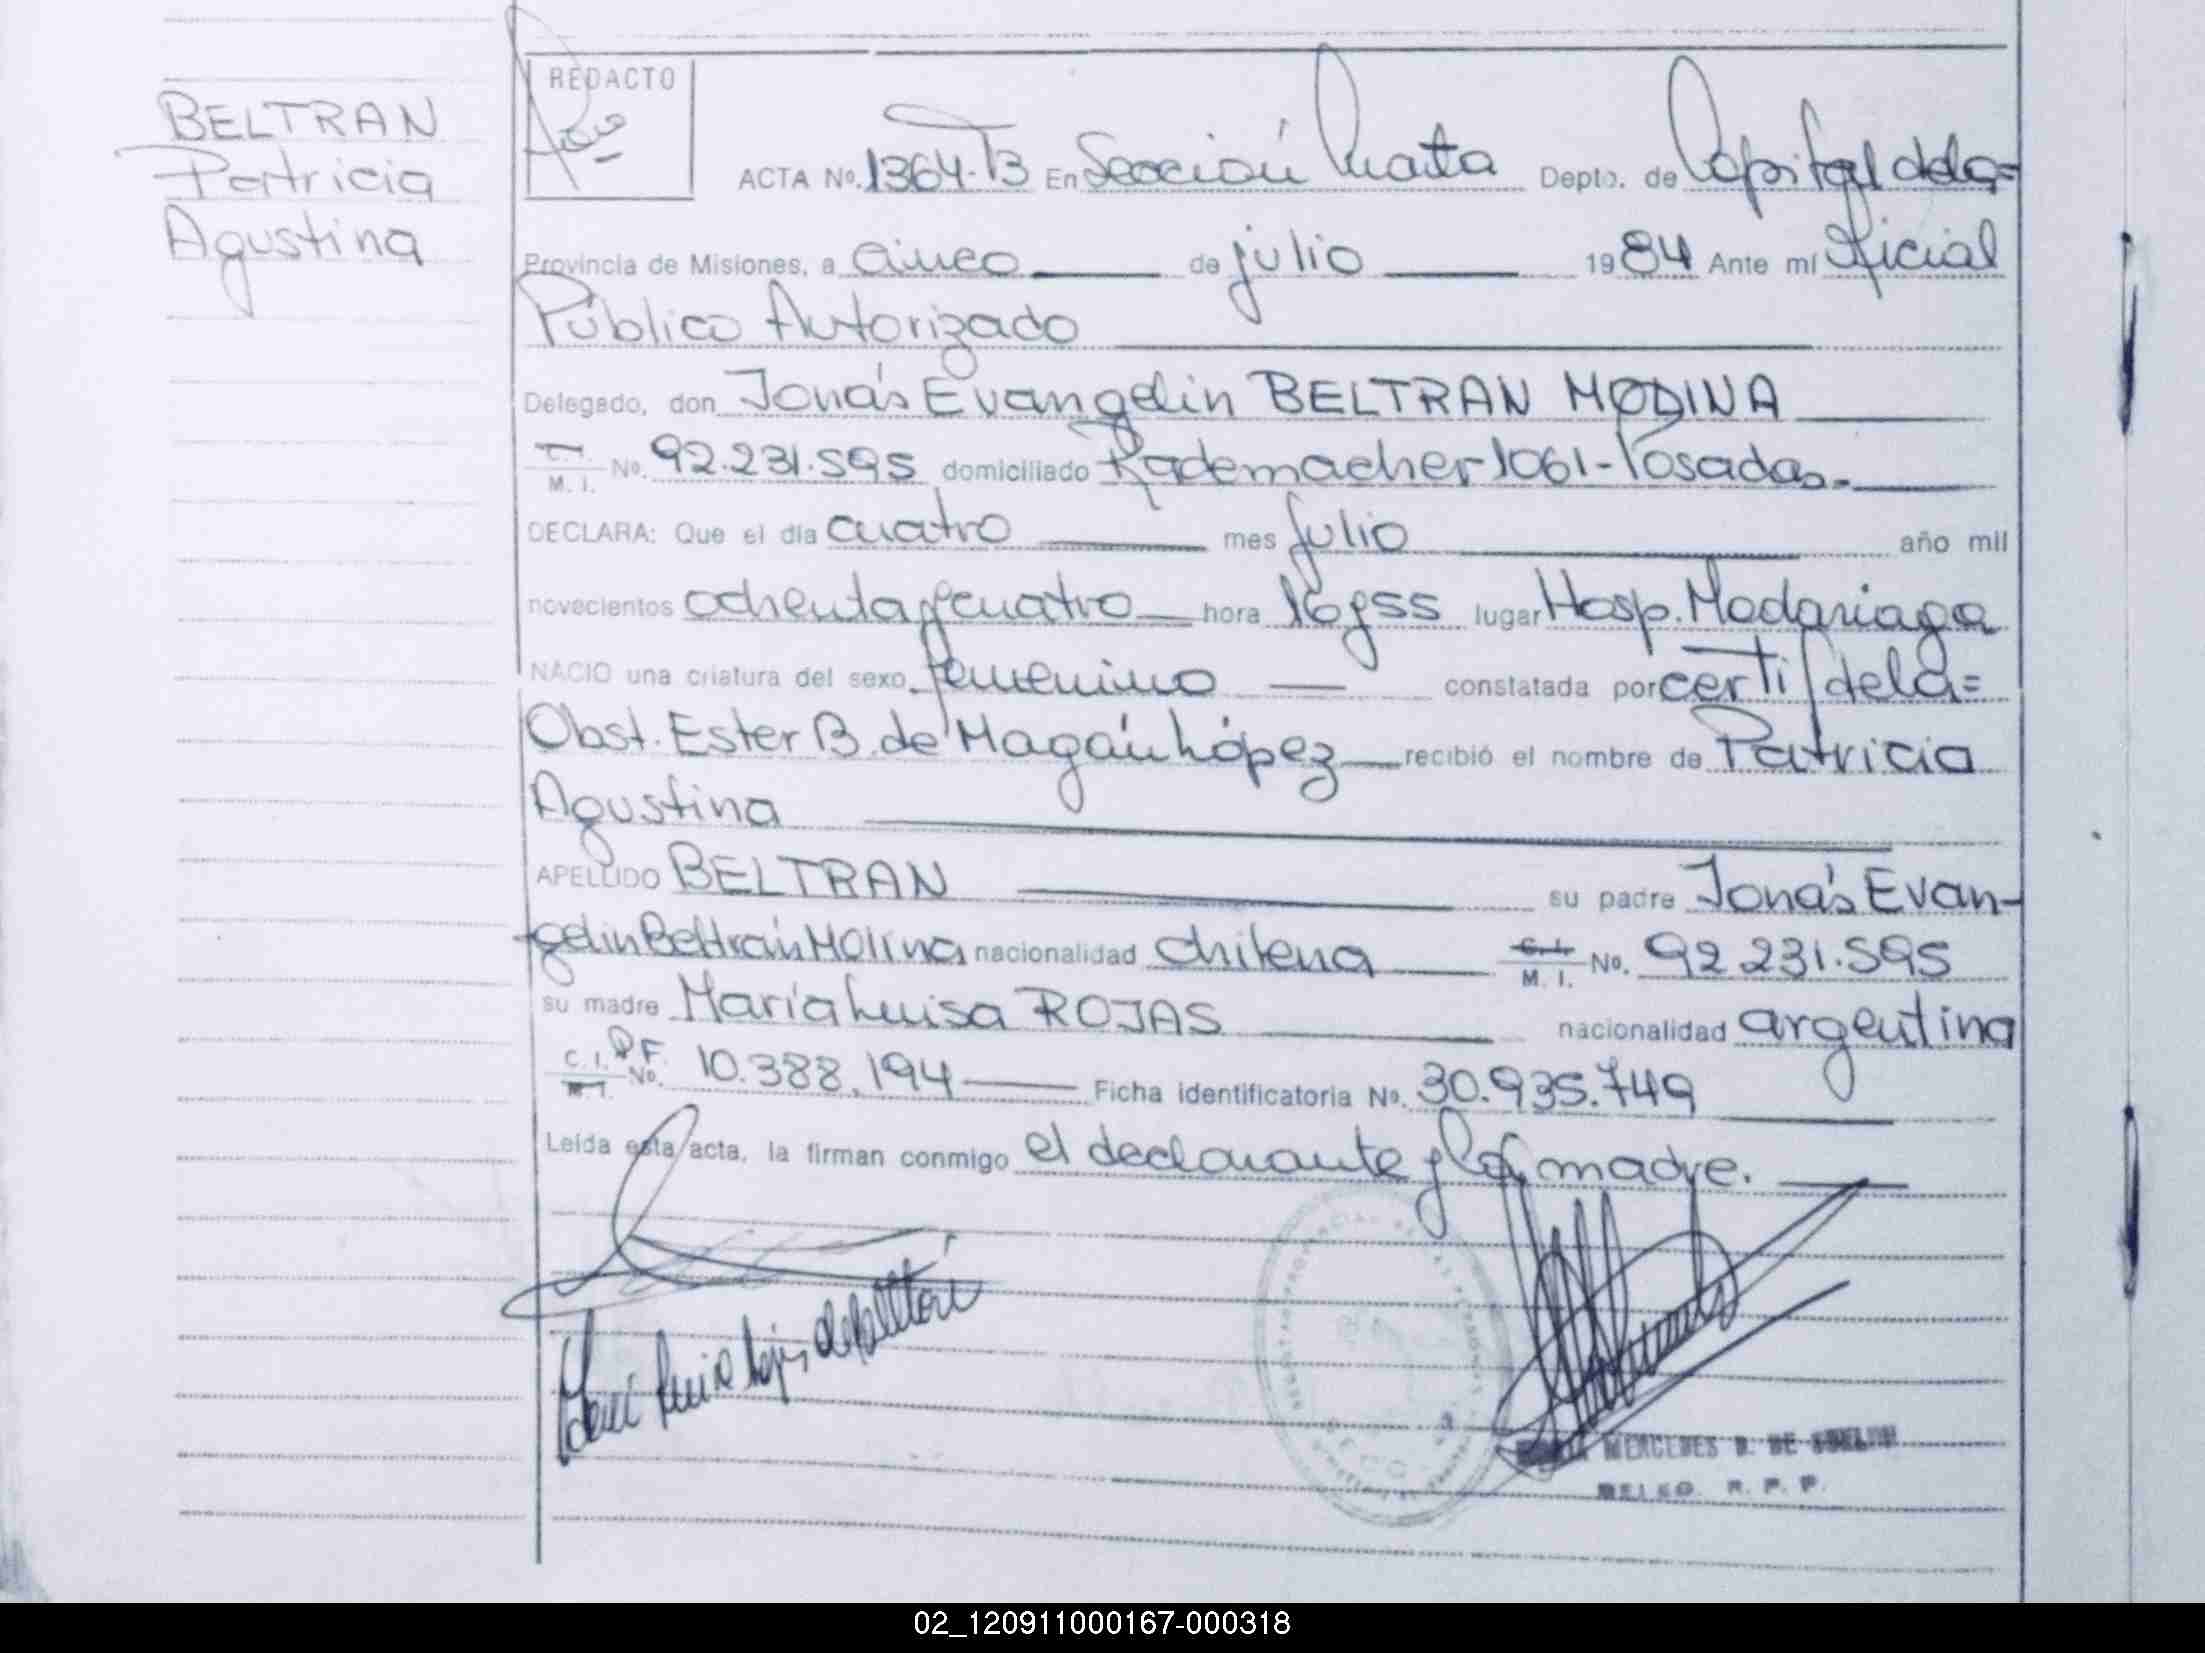 BELTRAN
Patricia
Agustina
REDACTO
ACTA Nº. 1364-T3 En Sección Cuarta Depto. de Capital dela=
Provincia de Misiones, a cinco de julio 1984 Ante mí Oficial
Público Autorizado
Delegado, don Jonás Evangelin BELTRAN MODINA
M. I. Nº. 92.231.595 domiciliado Rademacher 1061-Posadas.-
DECLARA: Que el día cuatro mes julio año mil
novecientos ochenta y cuatro hora 16 y 55 lugar Hosp. Madariaga
NACIO una criatura del sexo femenino constatada por certif dela=
Obst. Ester B. de Magán López recibió el nombre de Patricia
Agustina
APELLIDO BELTRAN su padre Jonás Evan-
gelin Beltrán Molina nacionalidad chilena C. I. M. I. Nº. 92 231.595
su madre María Luisa ROJAS nacionalidad argentina
C. I. P.F. M. I. Nº. 10.388.194 Ficha identificatoria Nº. 30.935.749
Leída esta acta, la firman conmigo el declarante y la madre.
MERCEDES D. DE
DELEG. R. P. P.
02_120911000167-000318